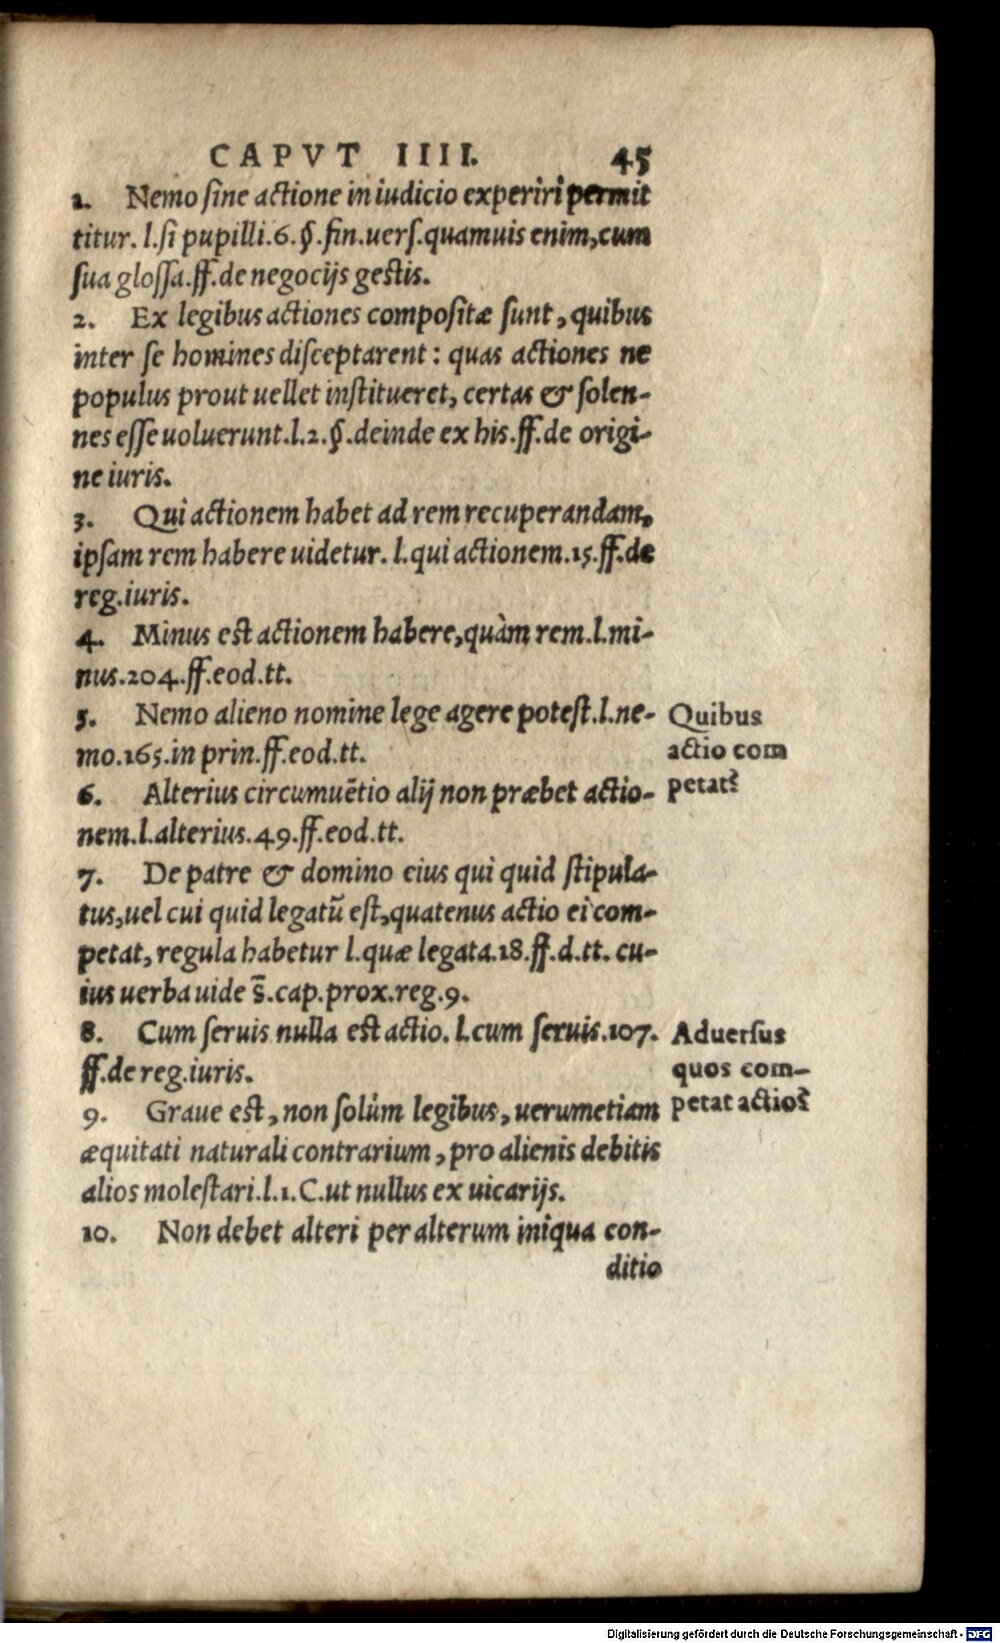 CAPVT IIII. 45
1. Nemo sine actione in iudicio experiri permit
titur. l.si pupilli.6.§.fin.uers.quamuis enim,cum
sua glossa.ff.de negocijs gestis.
2. Ex legibus actiones compositæ sunt, quibus
inter se homines disceptarent: quas actiones ne
populus prout uellet institueret, certas & solen-
nes esse uoluerunt.l.2.§.deinde ex his.ff.de origi-
ne iuris.
3. Qui actionem habet ad rem recuperandam,
ipsam rem habere uidetur. l.qui actionem.15.ff.de
reg.iuris.
4. Minus est actionem habere,quàm rem.l.mi-
nus.204.ff.eod.tt.
5. Nemo alieno nomine lege agere potest.l.ne-
mo.165.in prin.ff.eod.tt.
Quibus
actio com
petat?
6. Alterius circumuẽtio alij non præbet actio-
nem.l.alterius.49.ff.eod.tt.
7. De patre & domino eius qui quid stipula-
tus,uel cui quid legatũ est,quatenus actio ei com-
petat, regula habetur l.quæ legata.18.ff.d.tt. cu-
ius uerba uide s̃.cap.prox.reg.9.
8. Cum seruis nulla est actio. l.cum seruis.107.
ff.de reg.iuris.
Aduersus
quos com-
petat actio?
9. Graue est, non solùm legibus, uerumetiam
æquitati naturali contrarium, pro alienis debitis
alios molestari.l.1.C.ut nullus ex uicarijs.
10. Non debet alteri per alterum iniqua con-
ditio
Digitalisierung gefördert durch die Deutsche Forschungsgemeinschaft - DFG